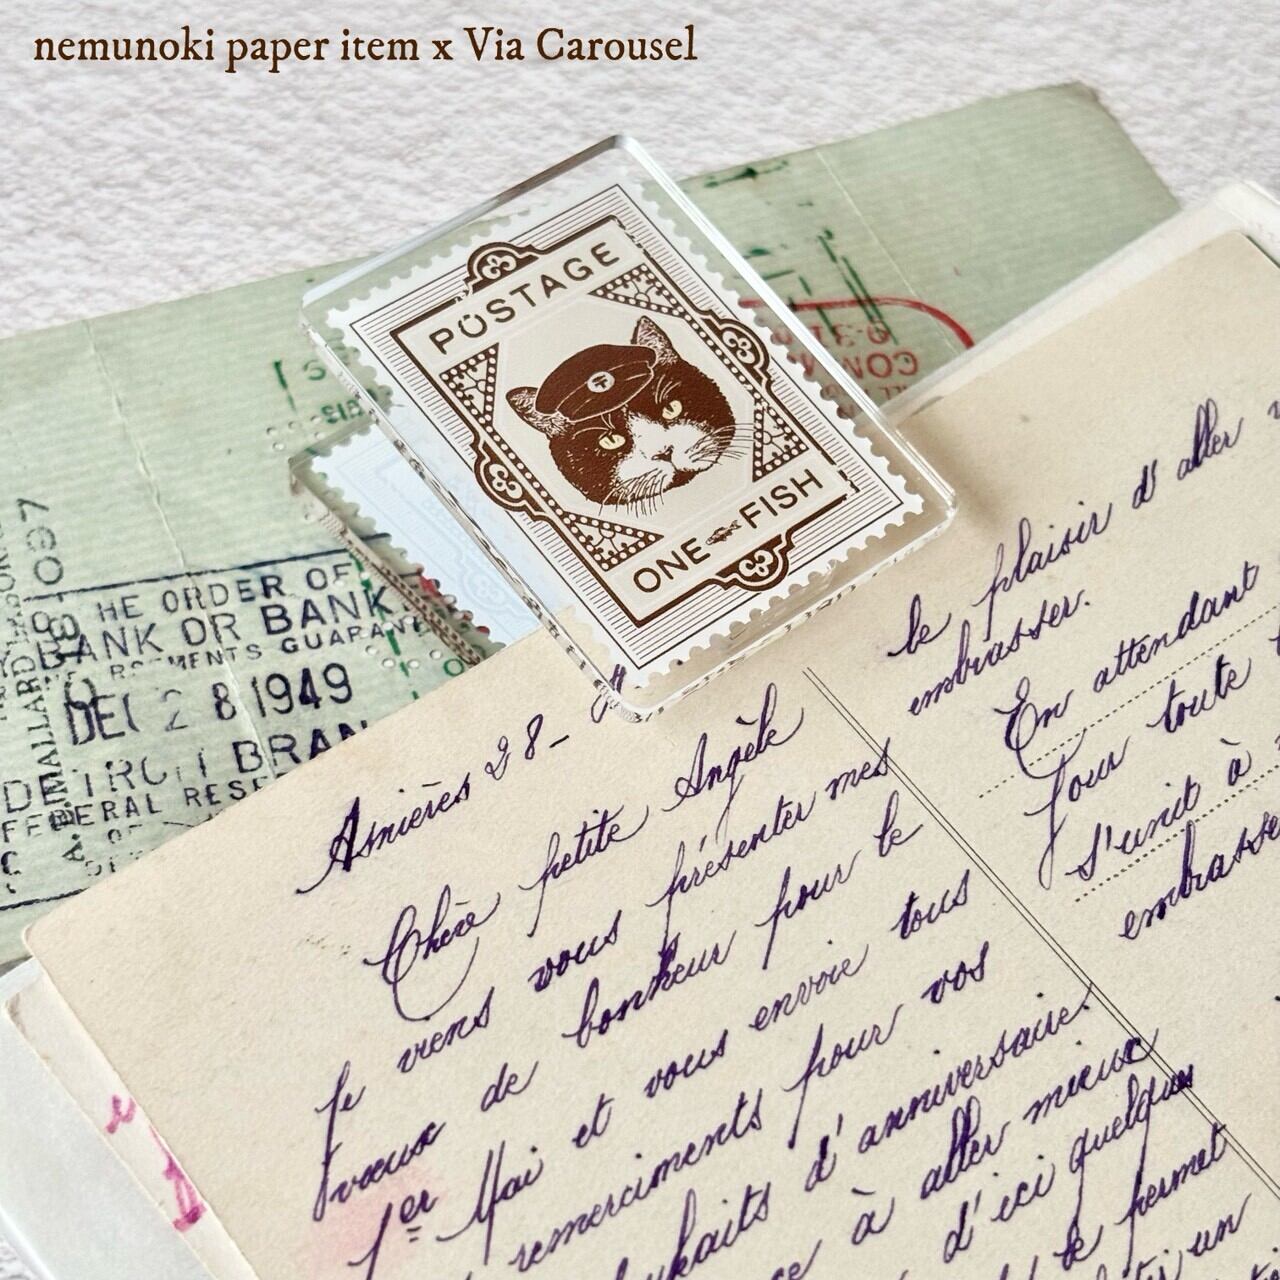 nemunoki paper item x Via Carousel
POSTAGE
ONE FISH
HE ORDER OF
BANK OR BANK
MENTS GUARAN
DEC 28 1949
DETROIT BRAN
FEDERAL RESE
A. B. MALLARD
Asnières 28_
Chère petite Angèle
Je viens vous présenter mes
vœux de bonheur pour le
1er Mai et vous envoie tous
remerciments pour vos
souhaits d'anniversaire.
à aller mieux
d'ici quelques
le permet
un
le plaisir d'aller
embrasser.
En attendant
Jour toute
s'unit à
embrasse